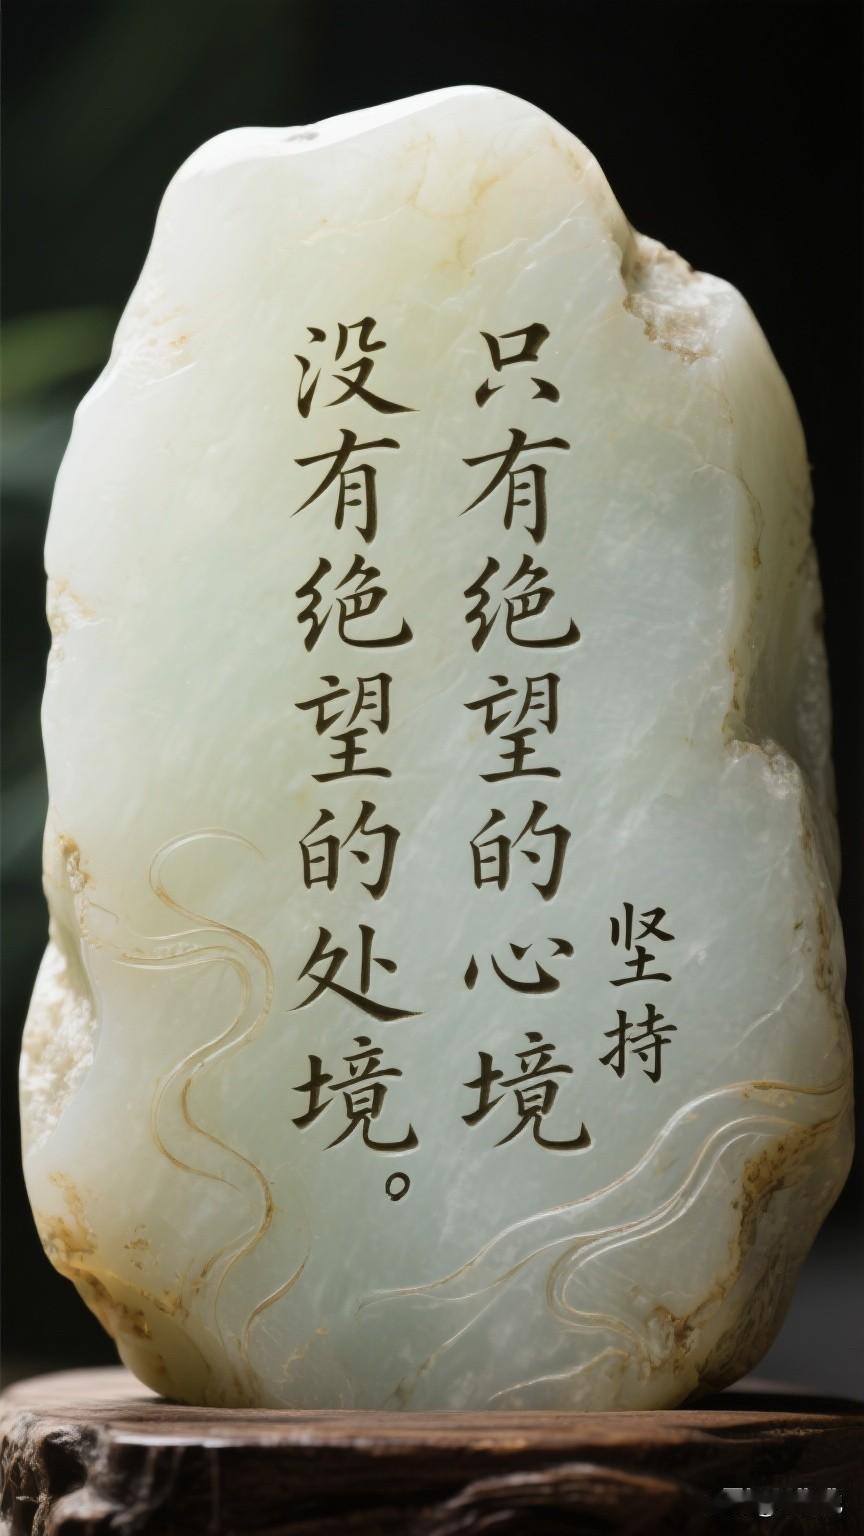 坚持
只有绝望的心境
没有绝望的处境。